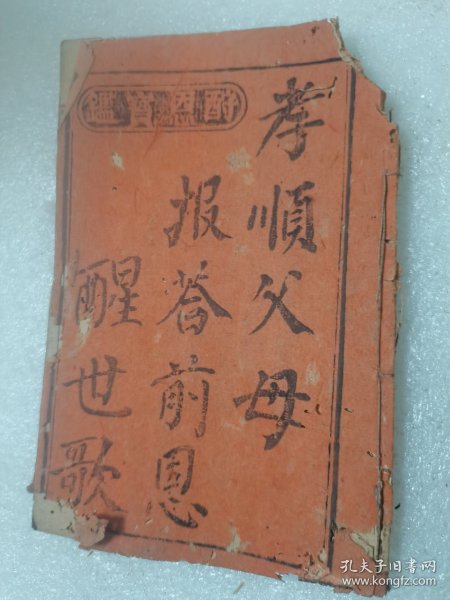 孝順父母
报荅前恩
醒世歌
孔夫子旧书网
www.kongfz.com